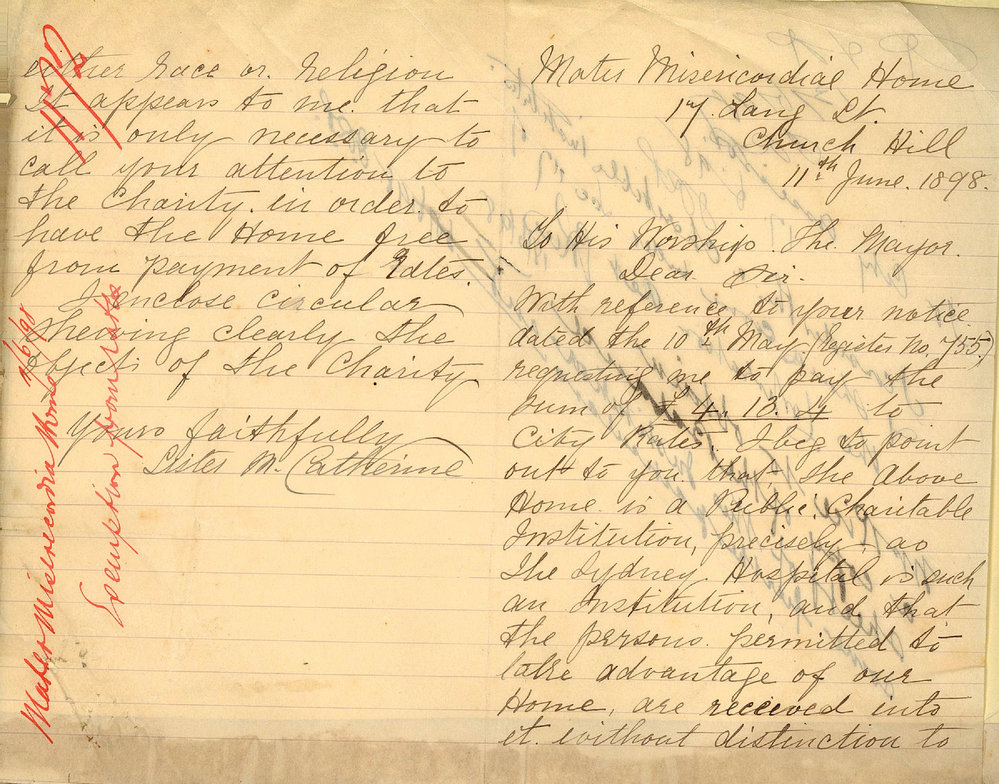 Mater Misericordiae Home
17. Lang St.
Church Hill
11th June. 1898.
To His Worship. The. Mayor.
Dear Sir.
With reference to your notice
dated the 10th May (Register No. 755,)
requesting me to pay the
sum of £4. 13. 4 to
City Rates. I beg to point
out to you that. the Above
Home. is a Public. Charitable
Institution, precisely, as
the Sydney Hospital is such
an Institution, and that
the persons. permitted to
take advantage of our
Home, are received into
it. without distinction to
either Race or Religion
It appears to me. that
it is only necessary to
call your attention to
the Charity. in order. to
have the Home free
from payment of Rates.
I enclose circular
shewing clearly the
objects of the Charity
Yours faithfully
Sister M. Catherine
Mater Misericordia Home 17/6/98
Exemption from rates